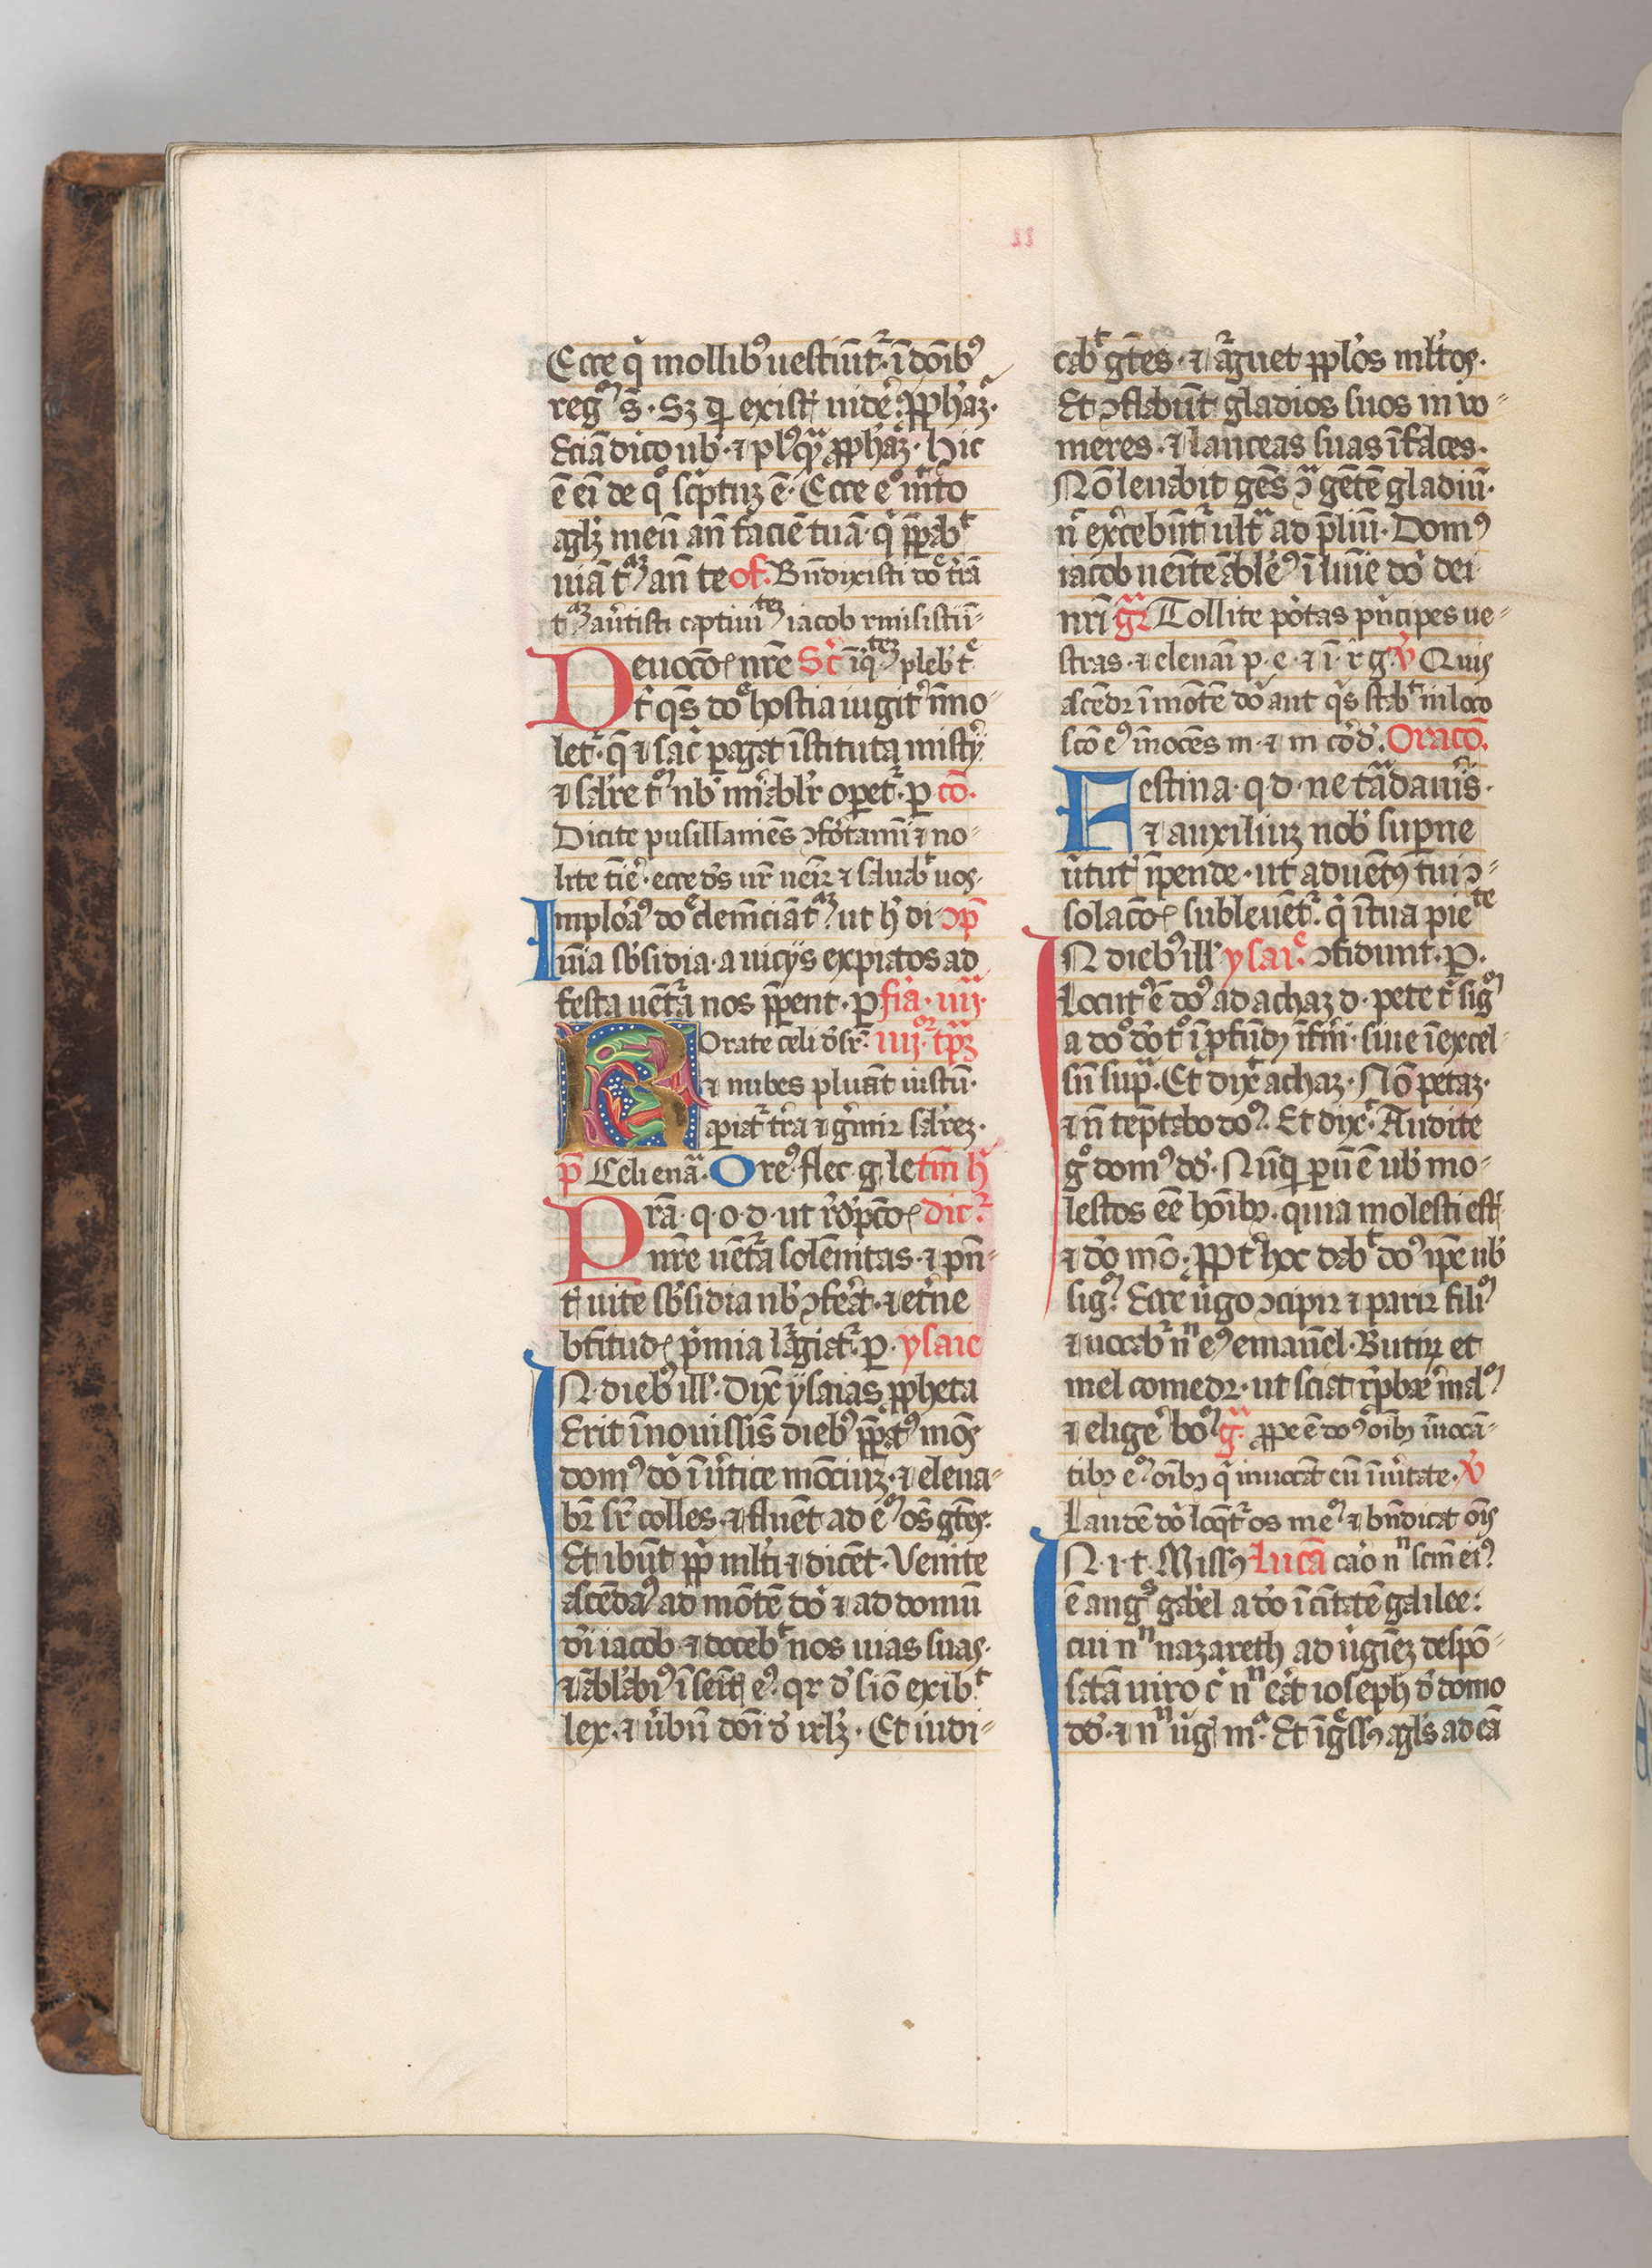 Ecce q̇ mollibꝰ uestiūt᷑. ī dōibꝰ
reg s̄. Sꝫ qͥ exist᷑ uidē. ꝓphaꝫ.
Eciā dico ub᷑. ⁊ plꝰqͣ ꝓphaꝫ. Hic
ē ei de qͦ sc̄ptuꝫ ē. Ecce eͦ mͥto
aglꝫ meū an̄ faciē tuā. q ꝑpabͭ
uiā t an̄ te of. Bn̄dixisti dōe tr̄ā
t au᷑tisti captiui iacob rmisisti ī
Deuocōe nr̄e Sc̄ iq pleb᷑ te
t᷑ qs̄ dōe hostia iugit᷑ īmo
let᷑. q̄ ⁊ sac̄ pagāt īstituta mistȳ
⁊ salr̄e t nb᷑ mi᷑abl᷑r opet᷑. p cō.
Dicite pusillanīes ↄfortamī ⁊ no
lite tīe᷑. ecce ds̄ ur̄ ueīꝫ ⁊ saluabͭ uos.
Imploraꝰ dōe clemēciā t ut h᷑ di ↄp̄
uīa sb᷑sidia. a uicijs expiatos ad
festa uēt᷑a nos ꝑpent. p fīa. iiij.
Rorate celi dsr̄. iiij tp̄ꝫ
⁊ nubes pluāt iustū.
apiat᷑ tr̄a ⁊ gm̄iꝫ salr̄eꝫ.
p̄ Celi enā. Oreꝰ. flec. g. le tm̄ h
Prā. q. o. d. ut rd̄pcōe dic᷑
nr̄e uēt᷑a solēnitas. ⁊ pn̄
t᷑ uite sb᷑sidia nb᷑ ↄferāt. ⁊ et᷑ne
bt̄itudē p᷑mia largiat᷑. p. ysaie
IN dieb᷑ ill᷑. Dix̄ ysaias ꝓpheta
Erit ī nouissīs diebꝰ ꝑpatꝰ mōs
domꝰ dō ī u᷑tice mōciuꝫ. ⁊ eleua
bꝫ sr̄ colles. ⁊ fluēt ad eͫ oēs gētes.
Et ibūt ppͥ ml᷑ti ⁊ dicēt. Venite
ascēdaꝰ ad mōtē dō ⁊ ad domū
di iacob ⁊ docebͭ nos uias suas.
⁊ ābl᷑abꝰ ī seīt eꝰ. qꝛ d᷑ siō exibͭ
lex. ⁊ u᷑bū dōi d᷑ irlꝫ. Et iudi
cabͭ gētes. ⁊ arguet ppl᷑os ml᷑tos.
Et ↄflabūt gladios suos in uo
meres. ⁊ lanceas suas ī falces.
Nō leuabit gēs ↄ gētē gladiū.
n̄ exc᷑ebūt᷑ ult᷑ ad pliū. Domꝰ
iacob ueīte ābl᷑eꝰ ī luīe dō dei
nr̄i gr̄ Tollite portas p᷑ncipes ue
stras. ⁊ eleuaī p. e. ⁊ ī. r. g. ℣ Quis
ascēdꝫ ī mōtē dō aut qs̄ stabͭ in loco
scō eꝰ īnocēs m. ⁊ m cor᷑d. Oracō.
Festina. q. d. ne tardaūis.
⁊ auxiliuꝫ nob᷑ superne
u᷑tut᷑ īpende. ut aduētꝰ tui ↄ
solacōe subleuēt᷑. q ī tua pie
IN diebꝰ ill᷑ ysaie. ↄfidunt. P.
Locutꝰ ē dōs ad achaz d. pete t sig
a dō dō t ī pfūdꝫ īfn᷑i. siue ī excel
sū sup. Et dixͭ achaz. Nō petaꝫ.
⁊ n̄ teptabo dō. Et dixͭ. Audite
gͦ domꝰ dd᷑. Nūqͥ parū ē ub᷑ mo
lestos eē hoībꝫ. quia molesti est᷑
⁊ dō mō. ꝓpt᷑ hoc dabͭ dōs ip̄e ub᷑
sig. Ecce u᷑go ↄcipiꝫ ⁊ pariꝫ fili
⁊ uocabꝫ nⁿ eꝰ emanuel. Butirꝫ et
mel comedꝫ. ut sciat r̄pbare mal
⁊ elige᷑ bo gͣ. ꝓpe ē dōs oībꝫ īuocā
tibꝫ eͫ oībꝫ q inuocāt eū ī u᷑itate. ℣
Laudē dō loq̄t᷑ os me ⁊ bn̄dicat oīs
IN. i. t. Missꝰ Lucā caro nⁿ scm̄ eiꝰ
ē angͭs gab᷑el a dō ī citatē galilee:
cui nⁿ nazareth ad u᷑gīeꝫ despō
satā uiro c̄ nⁿ erat ioseph d᷑ domo
dd᷑. ⁊ nⁿ u᷑g mͣ. Et īgssꝰ agl᷑s ad eā